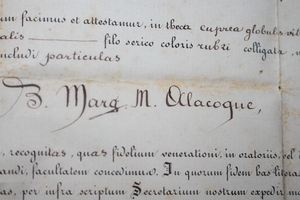 um facimus et attestamur, in theca cuprea globulis vit
alis filo serico coloris rubri colligata,
ncludi particulas
B. Marg. M. Alacoque,
, recognitas, quas fidelium venerationi, in oratoriis, sel
andi, facultatem concedimus. In quorum fidem has literas
as, per infra scriptum Secretarium nostrum expediri man